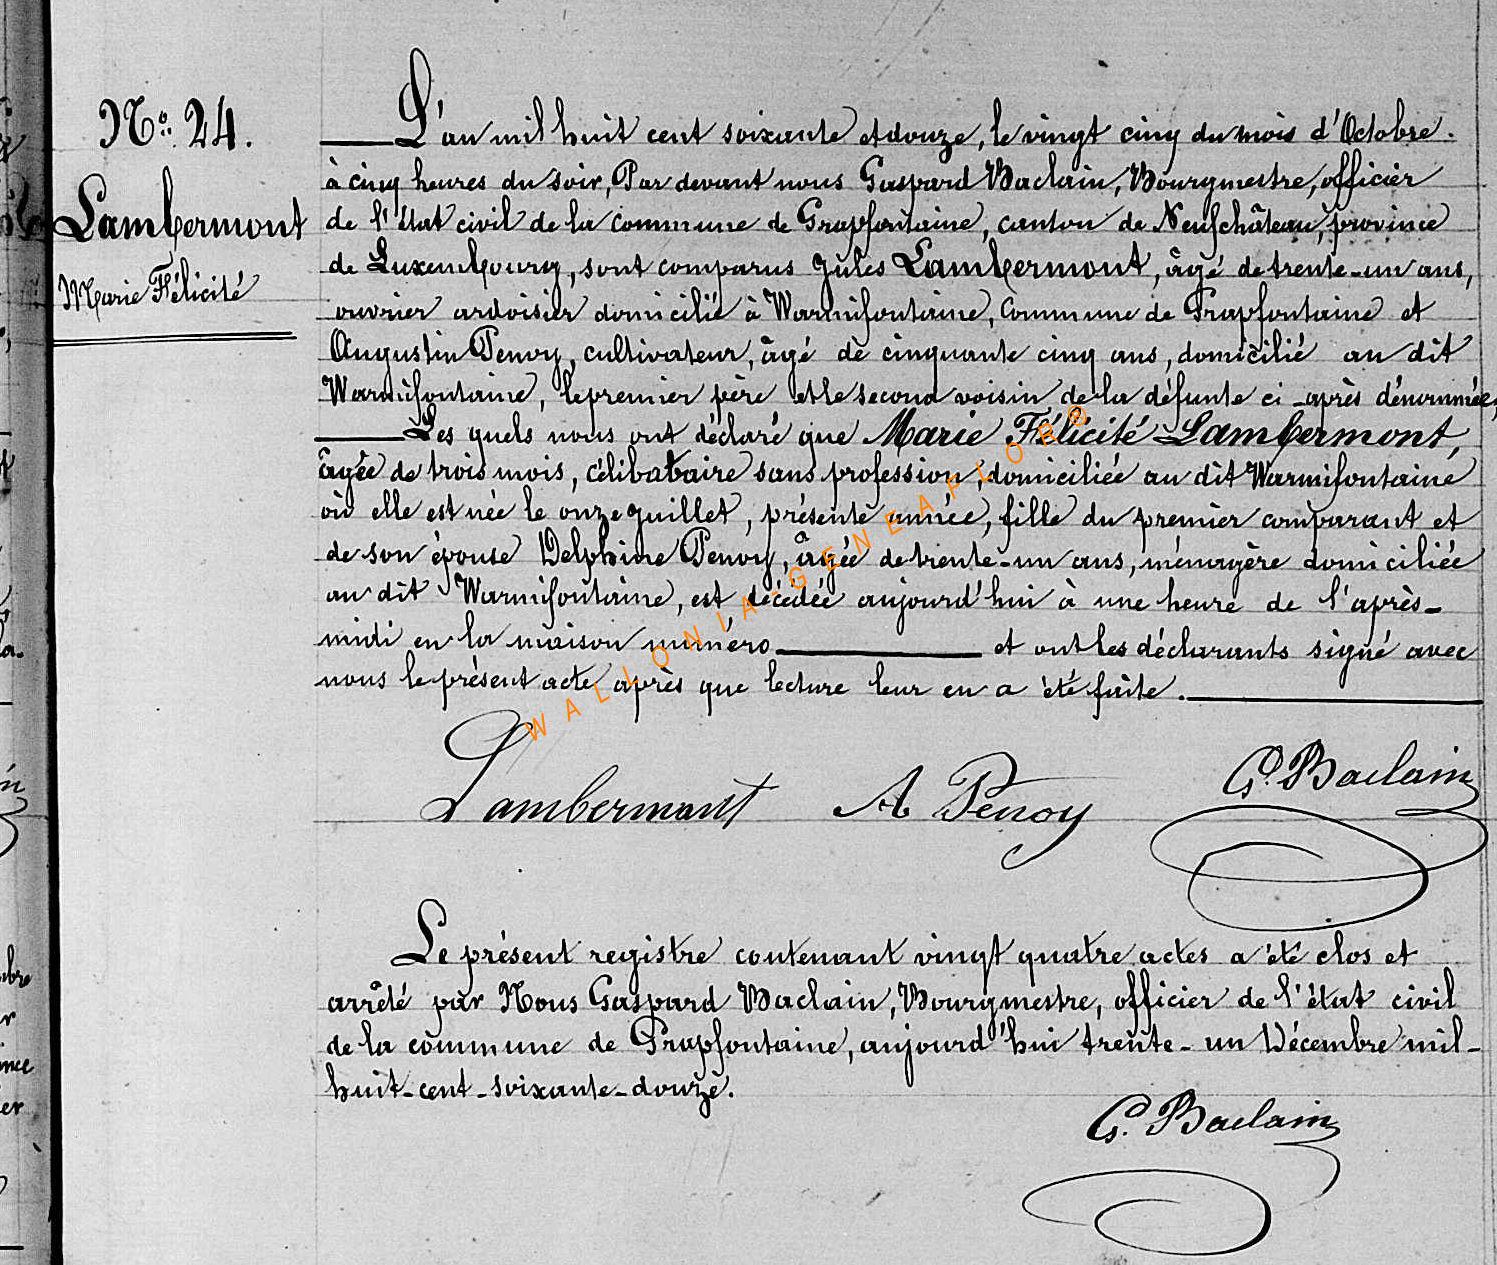 N.º 24.
Lambermont
Marie Félicité
L'an mil huit cent soixante et douze, le vingt cinq du mois d'Octobre.
à cinq heures du soir, Par devant nous Gaspard Baclain, Bourgmestre, officier
de l'état civil de la commune de Grapfontaine, canton de Neufchâteau, province
de Luxembourg, sont comparus Jules Lambermont, âgé de trente-un ans,
ouvrier ardoisier domicilié à Warmifontaine, Commune de Grapfontaine et
Augustin Penoy, cultivateur, âgé de cinquante cinq ans, domicilié au dit
Warmifontaine, le premier père et le second voisin de la défunte ci-après dénommée,
Les quels nous ont déclaré que Marie Félicité Lambermont,
âgée de trois mois, célibataire sans profession, domiciliée au dit Warmifontaine
où elle est née le onze juillet, présente année, fille du premier comparant et
de son épouse Delphine Penoy, âgée de trente-un ans, ménagère domiciliée
au dit Warmifontaine, est décédée aujourd'hui à une heure de l'après-
midi en la maison numéro et ont les déclarants signé avec
nous le présent acte après que lecture leur en a été faite.
WALLONIA-GENEAFLOR©
Lambermont A Penoy G. Baclain
Le présent registre contenant vingt quatre actes a été clos et
arrêté par Nous Gaspard Baclain, Bourgmestre, officier de l'état civil
de la commune de Grapfontaine, aujourd'hui trente-un Décembre mil-
huit-cent-soixante-douze.
G. Baclain